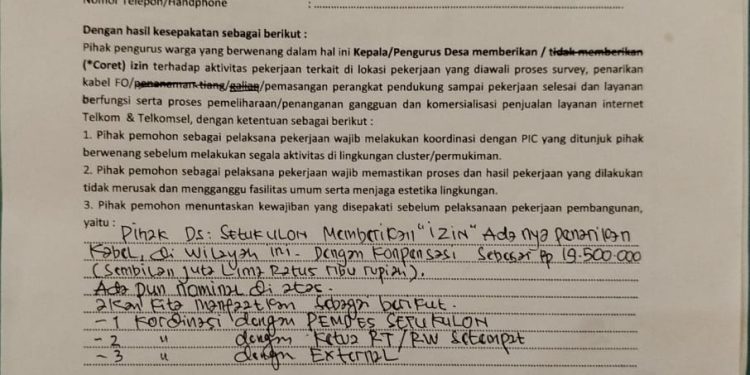 Nomor Telepon/Handphone :
Dengan hasil kesepakatan sebagai berikut :
Pihak pengurus warga yang berwenang dalam hal ini Kepala/Pengurus Desa memberikan / tidak memberikan
(*Coret) izin terhadap aktivitas pekerjaan terkait di lokasi pekerjaan yang diawali proses survey, penarikan
kabel FO/penanaman tiang/galian/pemasangan perangkat pendukung sampai pekerjaan selesai dan layanan
berfungsi serta proses pemeliharaan/penanganan gangguan dan komersialisasi penjualan layanan internet
Telkom & Telkomsel, dengan ketentuan sebagai berikut :
1. Pihak pemohon sebagai pelaksana pekerjaan wajib melakukan koordinasi dengan PIC yang ditunjuk pihak
berwenang sebelum melakukan segala aktivitas di lingkungan cluster/permukiman.
2. Pihak pemohon sebagai pelaksana pekerjaan wajib memastikan proses dan hasil pekerjaan yang dilakukan
tidak merusak dan mengganggu fasilitas umum serta menjaga estetika lingkungan.
3. Pihak pemohon menuntaskan kewajiban yang disepakati sebelum pelaksanaan pekerjaan pembangunan,
yaitu :
Pihak Ds: SETUKULON Memberikan "IZIN" Adanya penarikan
Kabel, di wilayah ini. Dengan Konpensasi Sebesar Rp 19.500.000
(Sembilan Juta Lima Ratus ribu rupiah).
Ada pun nominal di atas.
akan kita manfaatkan sebagai berikut.
- 1 Kordinasi dengan PEMDES SETUKULON
- 2 " dengan Ketua RT/RW Setempat
- 3 " dengan EXTERNAL